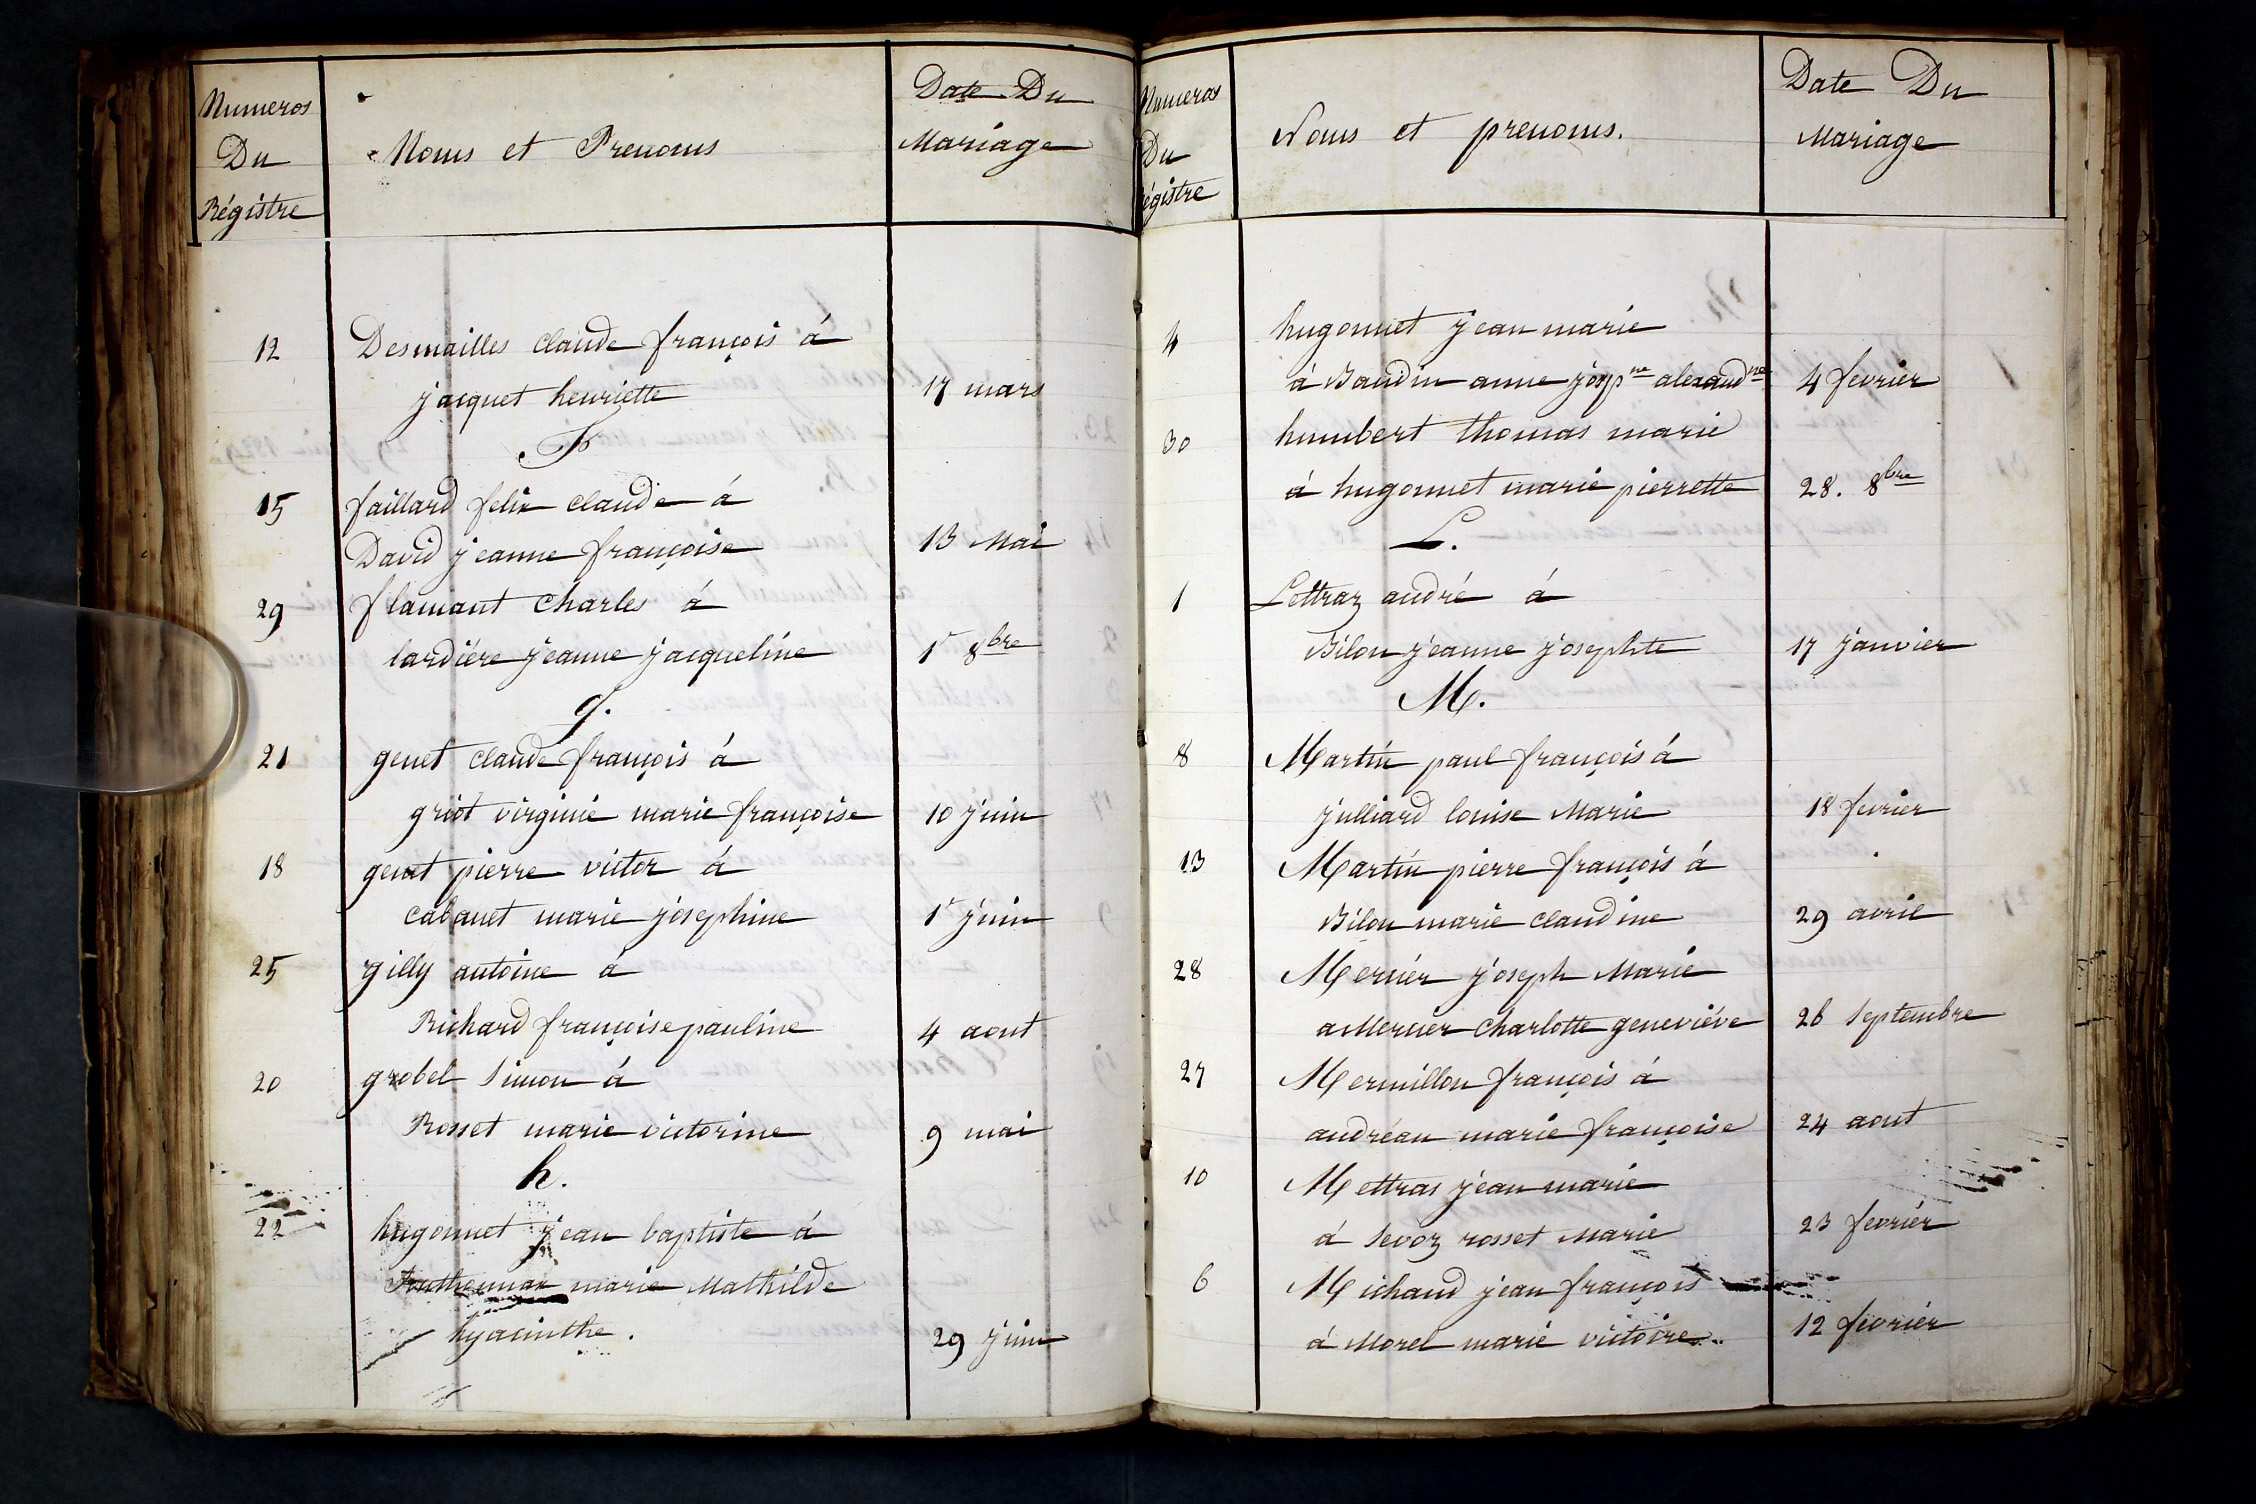 Numeros
Du
Régistre
Noms et Prenoms
Date Du
Mariage
12
Desmailles claude françois á
jacquet henriette
17 mars
F
15
faillard felix claude á
David jeanne françoise
13 Mai
29
flamant charles á
lardiére jeanne jacqueline
1r 8bre
g.
21
genet claude françois á
griot virginie marie françoise
10 juin
18
genet pierre victor á
cabanet marie josephine
1r juin
25
gilly antoine á
Richard françoise pauline
4 aout
20
grobel Simon á
Rosset marie victorine
9 mai
h.
22
hugonnet jean baptiste á
marie Mathilde
hyacinthe.
29 juin
Numeros
Du
Régistre
Noms et prenoms.
Date Du
Mariage
4
hugonnet jean marie
á Baudin anne josp.ne alexand.ne
4 fevrier
30
humbert thomas marie
á hugonnet marie pierrette
28. 8bre
L.
1
Lettraz andré á
Bilon jeanne josephte
17 janvier
M.
8
Martin paul françois á
julliard louise Marie
18 fevrier
13
Martin pierre françois á
Bilon marie claudine
29 avril
28
Mernier joseph Marie
a Mernier charlotte geneviéve
26 Septembre
27
Mermillon françois á
andréan marie françoise
24 aout
10
Mettras jean marie
á Sevoz rosset Marie
23 fevriér
6
Michaud jean françois
á Morel marie victoire
12 fevriér